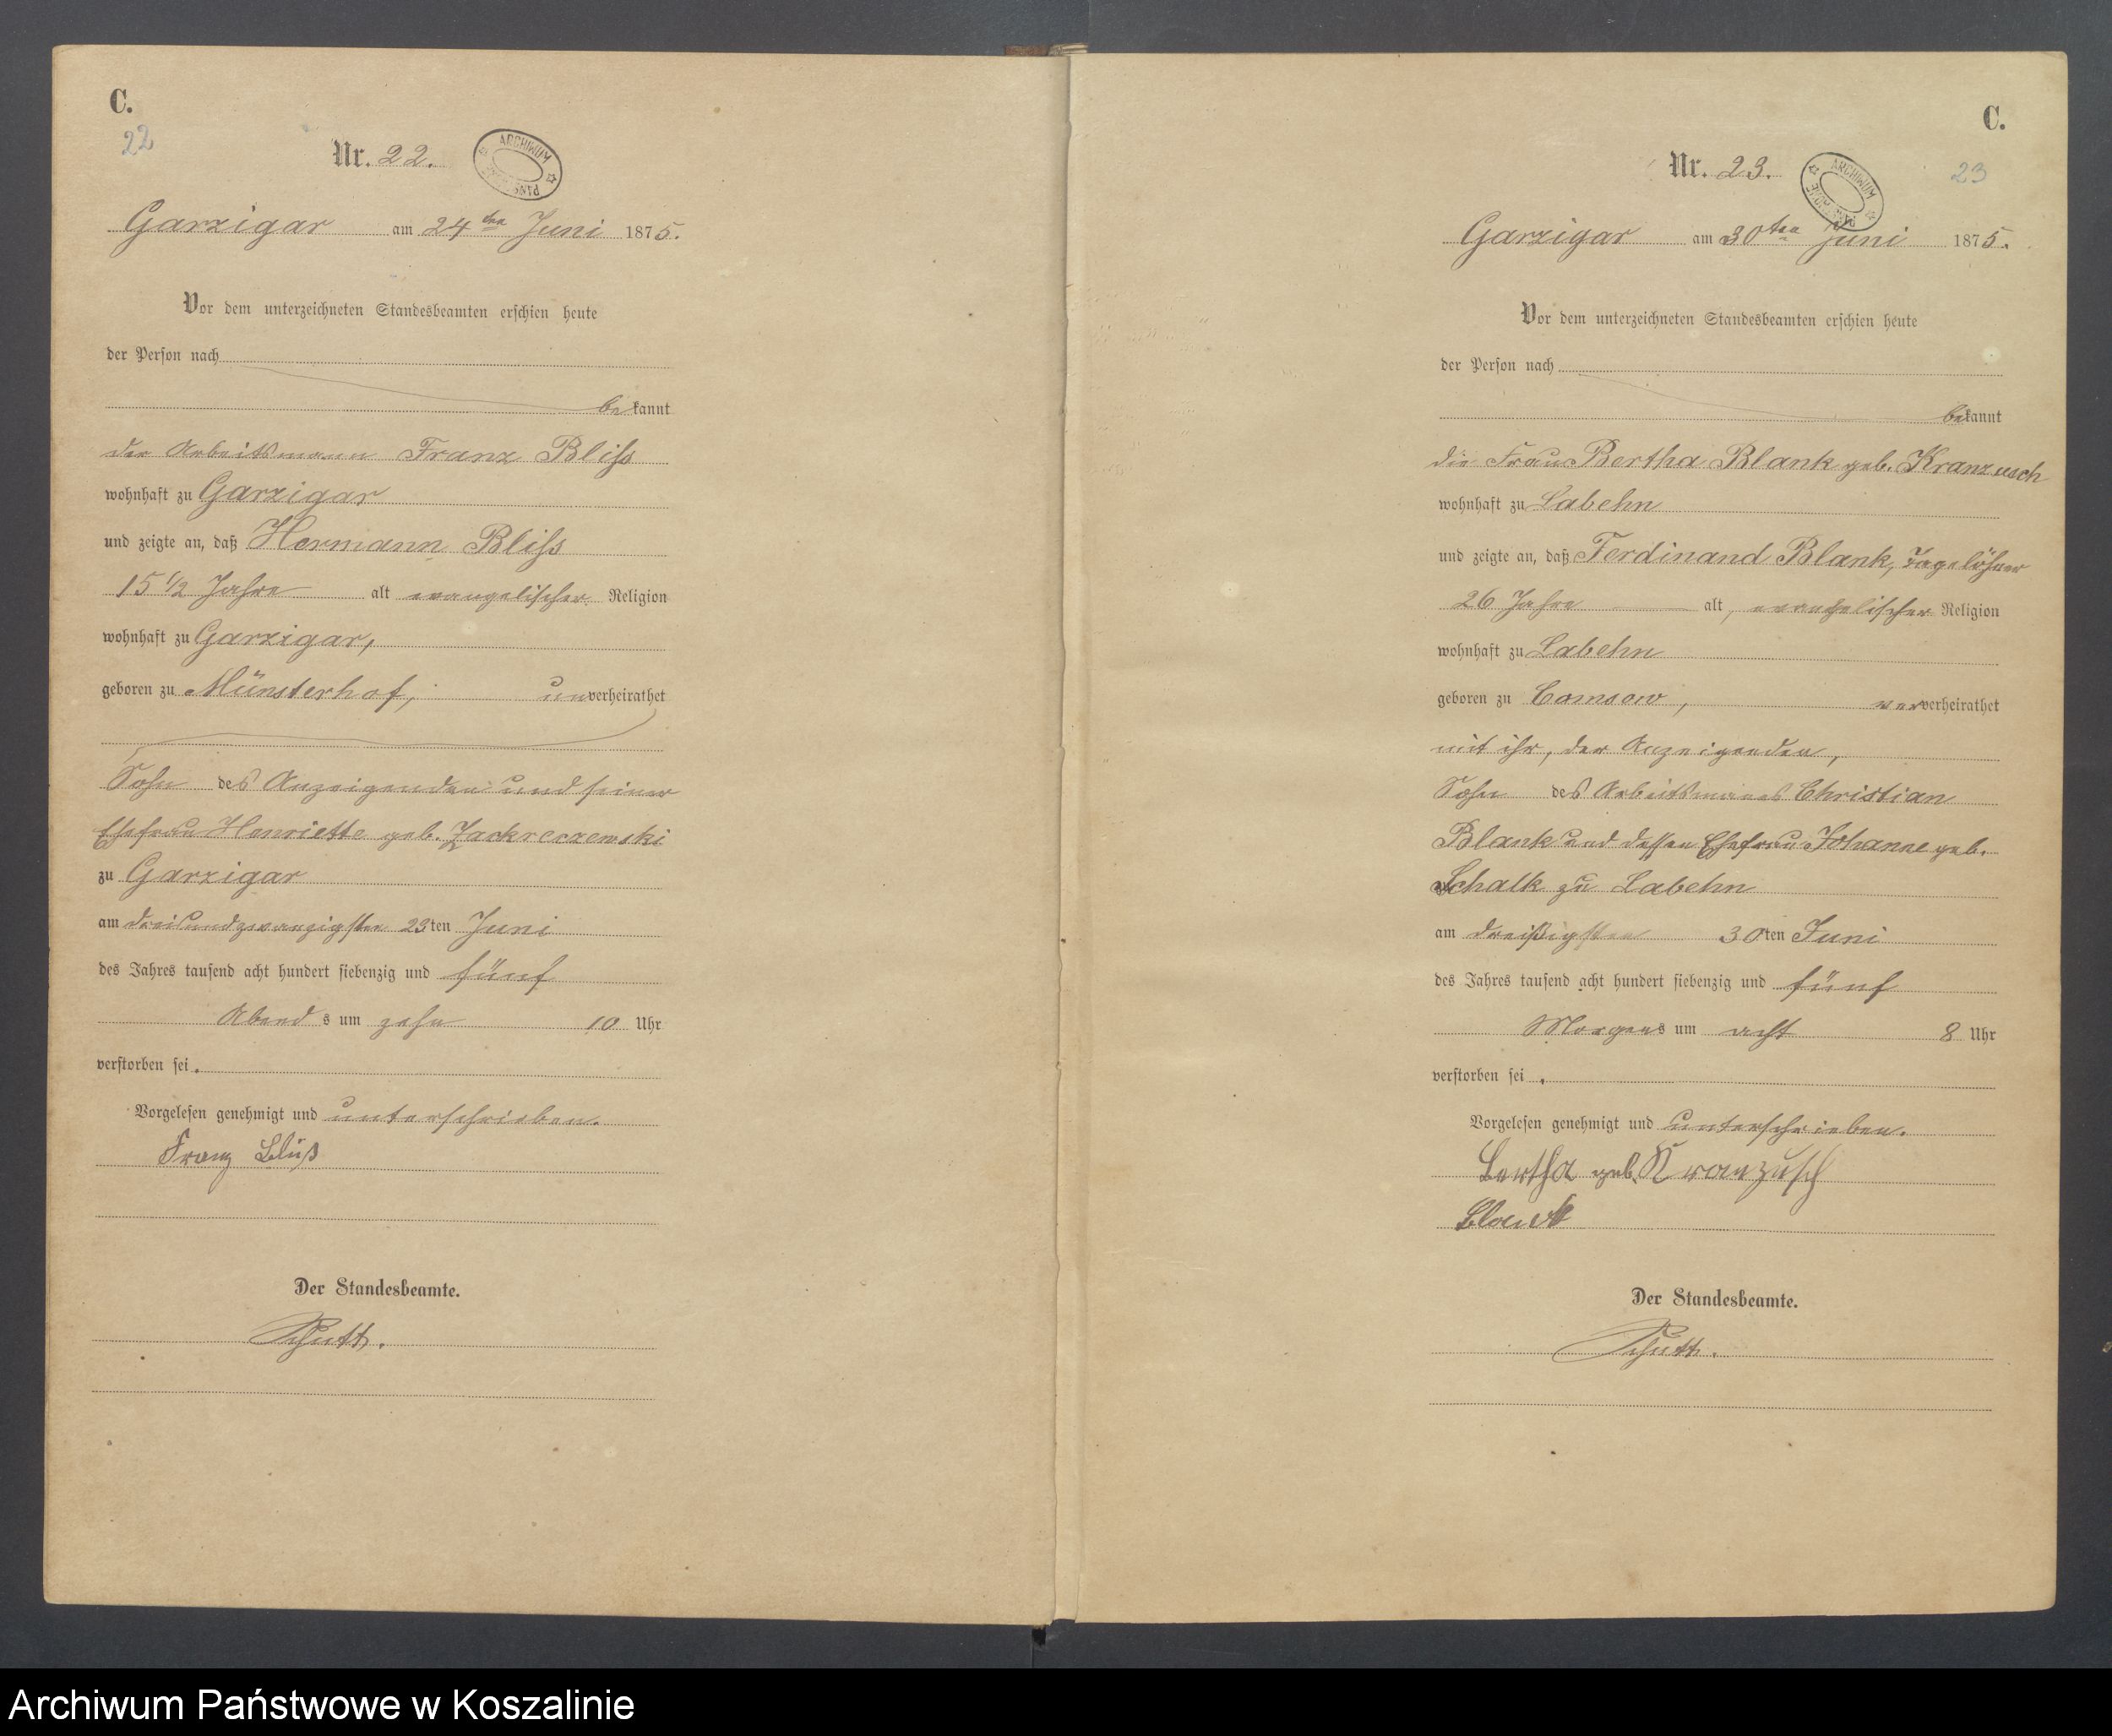 C.
22
Nr. 22.
ARCHIWUM PAŃSTWOWE
Garzigar am 24ten Juni 1875.
Vor dem unterzeichneten Standesbeamten erschien heute
der Person nach
bekannt
der Arbeitsmann Franz Bliss
wohnhaft zu Garzigar
und zeigte an, daß Hermann Bliss
15 1/2 Jahre alt evangelischer Religion
wohnhaft zu Garzigar,
geboren zu Münsterhof, unverheirathet
Sohn des Anzeigenden und seiner
Ehefrau Henriette geb.
zu Garzigar
am dreiundzwanzigsten 23ten Juni
des Jahres tausend acht hundert siebenzig und fünf
Abends um zehn 10 Uhr
verstorben sei.
Vorgelesen genehmigt und unterschrieben.
Franz Bliß
Der Standesbeamte.
C.
Nr. 23.
ARCHIWUM
23
Garzigar am 30ten Juni 1875.
Vor dem unterzeichneten Standesbeamten erschien heute
der Person nach
bekannt
die Frau Bertha Blank geb. Kranzusch
wohnhaft zu Labehn
und zeigte an, daß Ferdinand Blank, Tagelöhner
26 Jahre alt, evangelischer Religion
wohnhaft zu Labehn
geboren zu Comsow, ververheirathet
mit ihr, der Anzeigenden,
Sohn des Arbeitsmannes Christian
Blank und dessen Ehefrau Johanne geb.
Schalk zu Labehn
am dreißigsten 30ten Juni
des Jahres tausend acht hundert siebenzig und fünf
Morgens um acht 8 Uhr
verstorben sei.
Vorgelesen genehmigt und unterschrieben.
Bertha geb. Kranzusch
Blank
Der Standesbeamte.
Archiwum Państwowe w Koszalinie